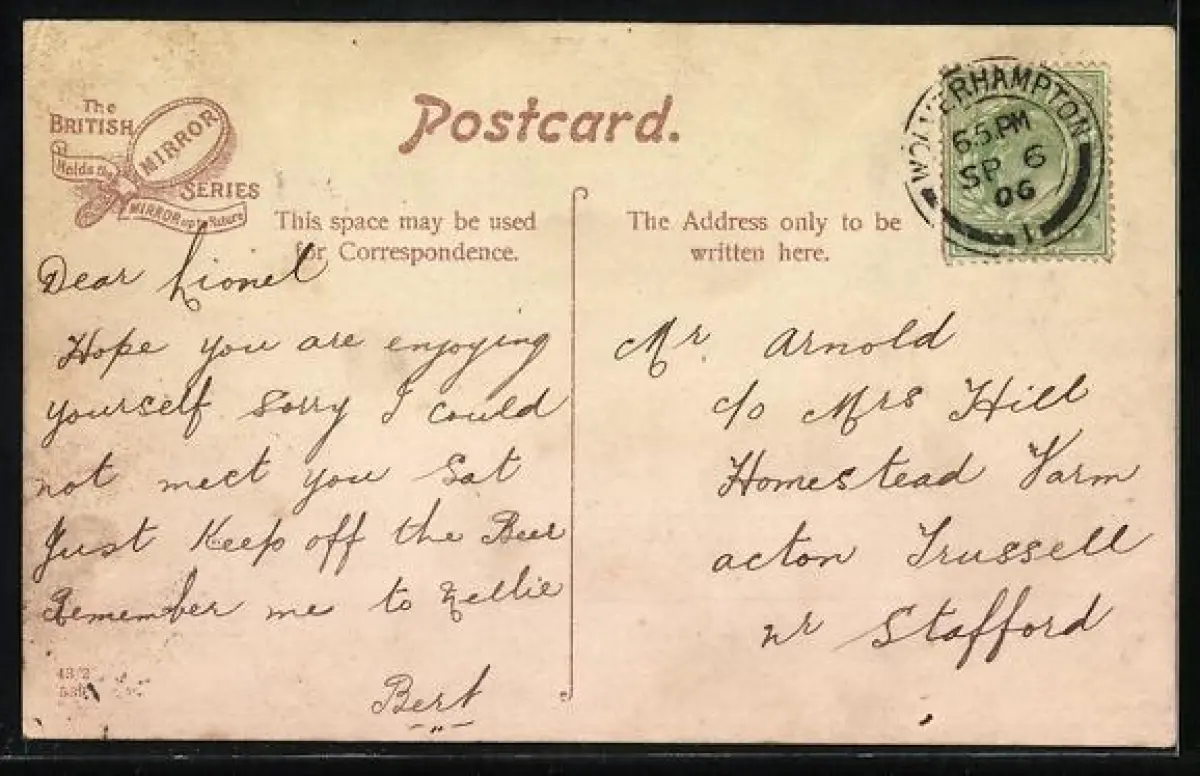 The
BRITISH
MIRROR
SERIES
Holds the
MIRROR up to Nature
Postcard.
WOLVERHAMPTON
6.5.PM
SP 6
06
1
This space may be used
for Correspondence.
The Address only to be
written here.
Dear Lionel
Hope you are enjoying
yourself Sorry I could
not meet you Sat
Just Keep off the Beer
Remember me to Nellie
Bert
Mr Arnold
c/o Mrs Hill
Homestead Farm
acton Trussell
nr Stafford